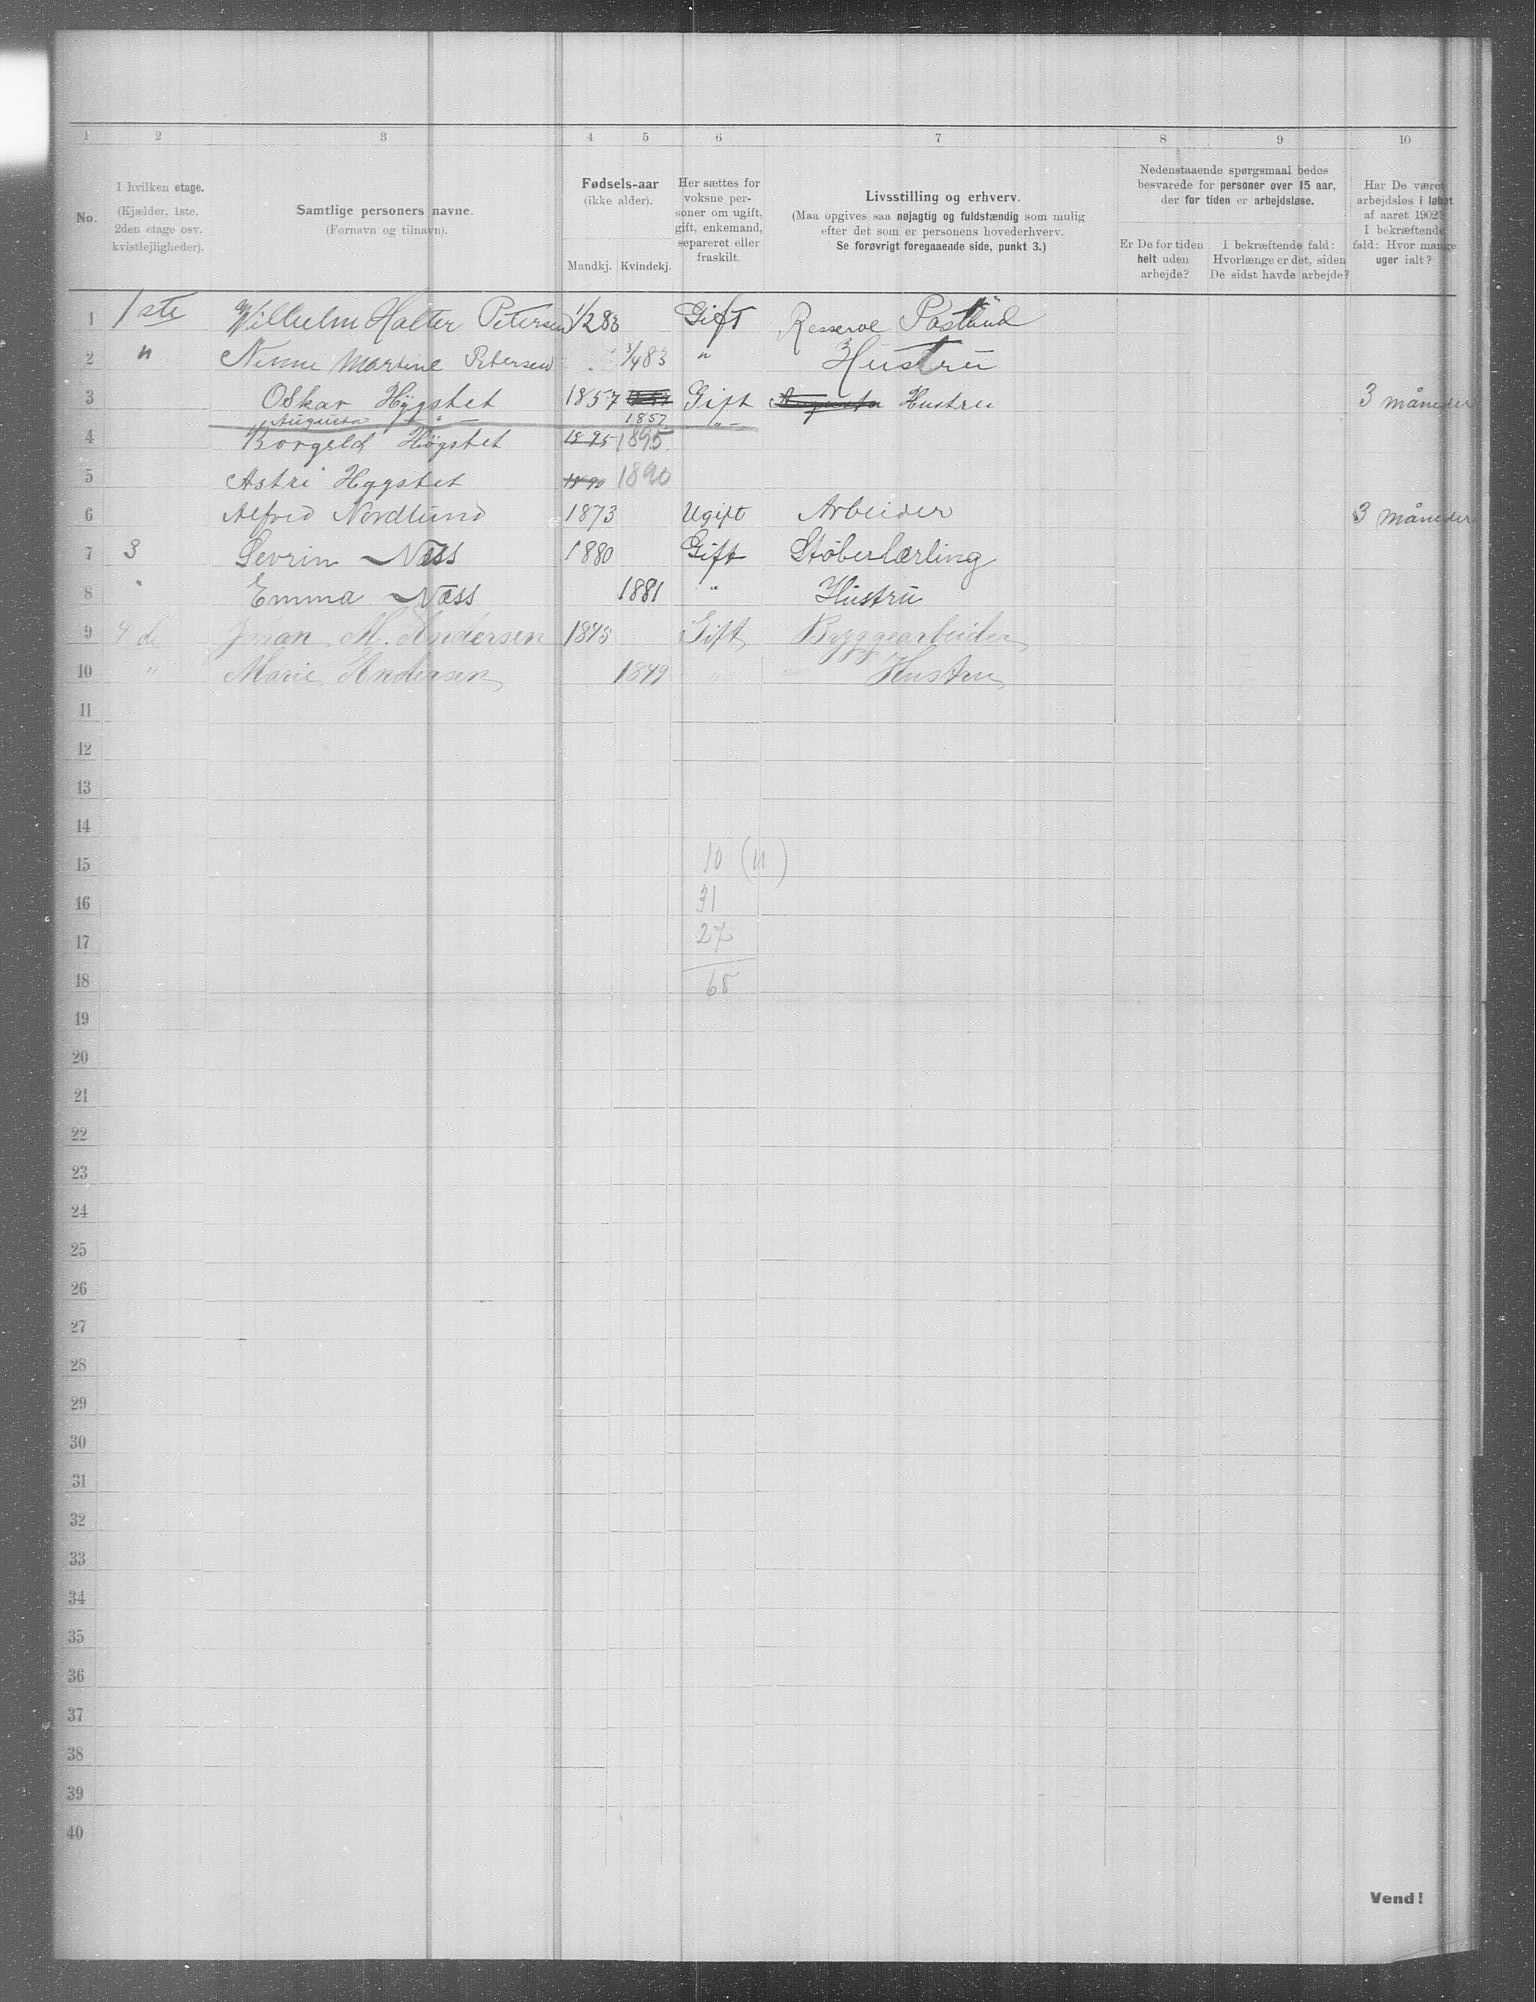 1 2 3 4 5 6 7 8 9 10
No.
I hvilken etage.
(Kjælder, 1ste,
2den etage osv.
kvistlejligheder).
Samtlige personers navne.
(Fornavn og tilnavn).
Fødsels-aar
(ikke alder).
Mandkj. Kvindekj.
Her sættes for
voksne per-
soner om ugift,
gift, enkemand,
separeret eller
fraskilt.
Livsstilling og erhverv.
(Maa opgives saa nøjagtig og fuldstændig som mulig
efter det som er personens hovederhverv.
Se forøvrigt foregaaende side, punkt 3.)
Nedenstaaende spørgsmaal bedes
besvarede for personer over 15 aar,
der for tiden er arbejdsløse.
Er De for tiden
helt uden
arbejde?
I bekræftende fald:
Hvorlænge er det, siden
De sidst havde arbejde?
Har De været
arbejdsløs i løbet
af aaret 1902?
I bekræftende
fald: Hvor mange
uger ialt?
1 1ste Wilhelm Halter Petersen 1/283 Gift Reserve
2 " Martine Petersen 3/483 " Hustru
3 Oskar Hygstet 1857 Gift Augusta Hustru 3 måneder
Augusta " 1857 "
4 Borgeld Høgstet 1895 1895
5 Astri Hygstet 1890 1890
6 Alfred Nordlund 1873 Ugift Arbeider 3 måneder
7 3 Sevrin Næss 1880 Gift Støberlærling
8 " Emma Næss 1881 " Hustru
9 4de Johan M. Andersen 1845 Gift Byggearbeider
10 " Marie Andersen 1849 " Hustru
11
12
13
14
15 10 (11)
16 31
17 27
18 68
19
20
21
22
23
24
25
26
27
28
29
30
31
32
33
34
35
36
37
38
39
40
Vend!